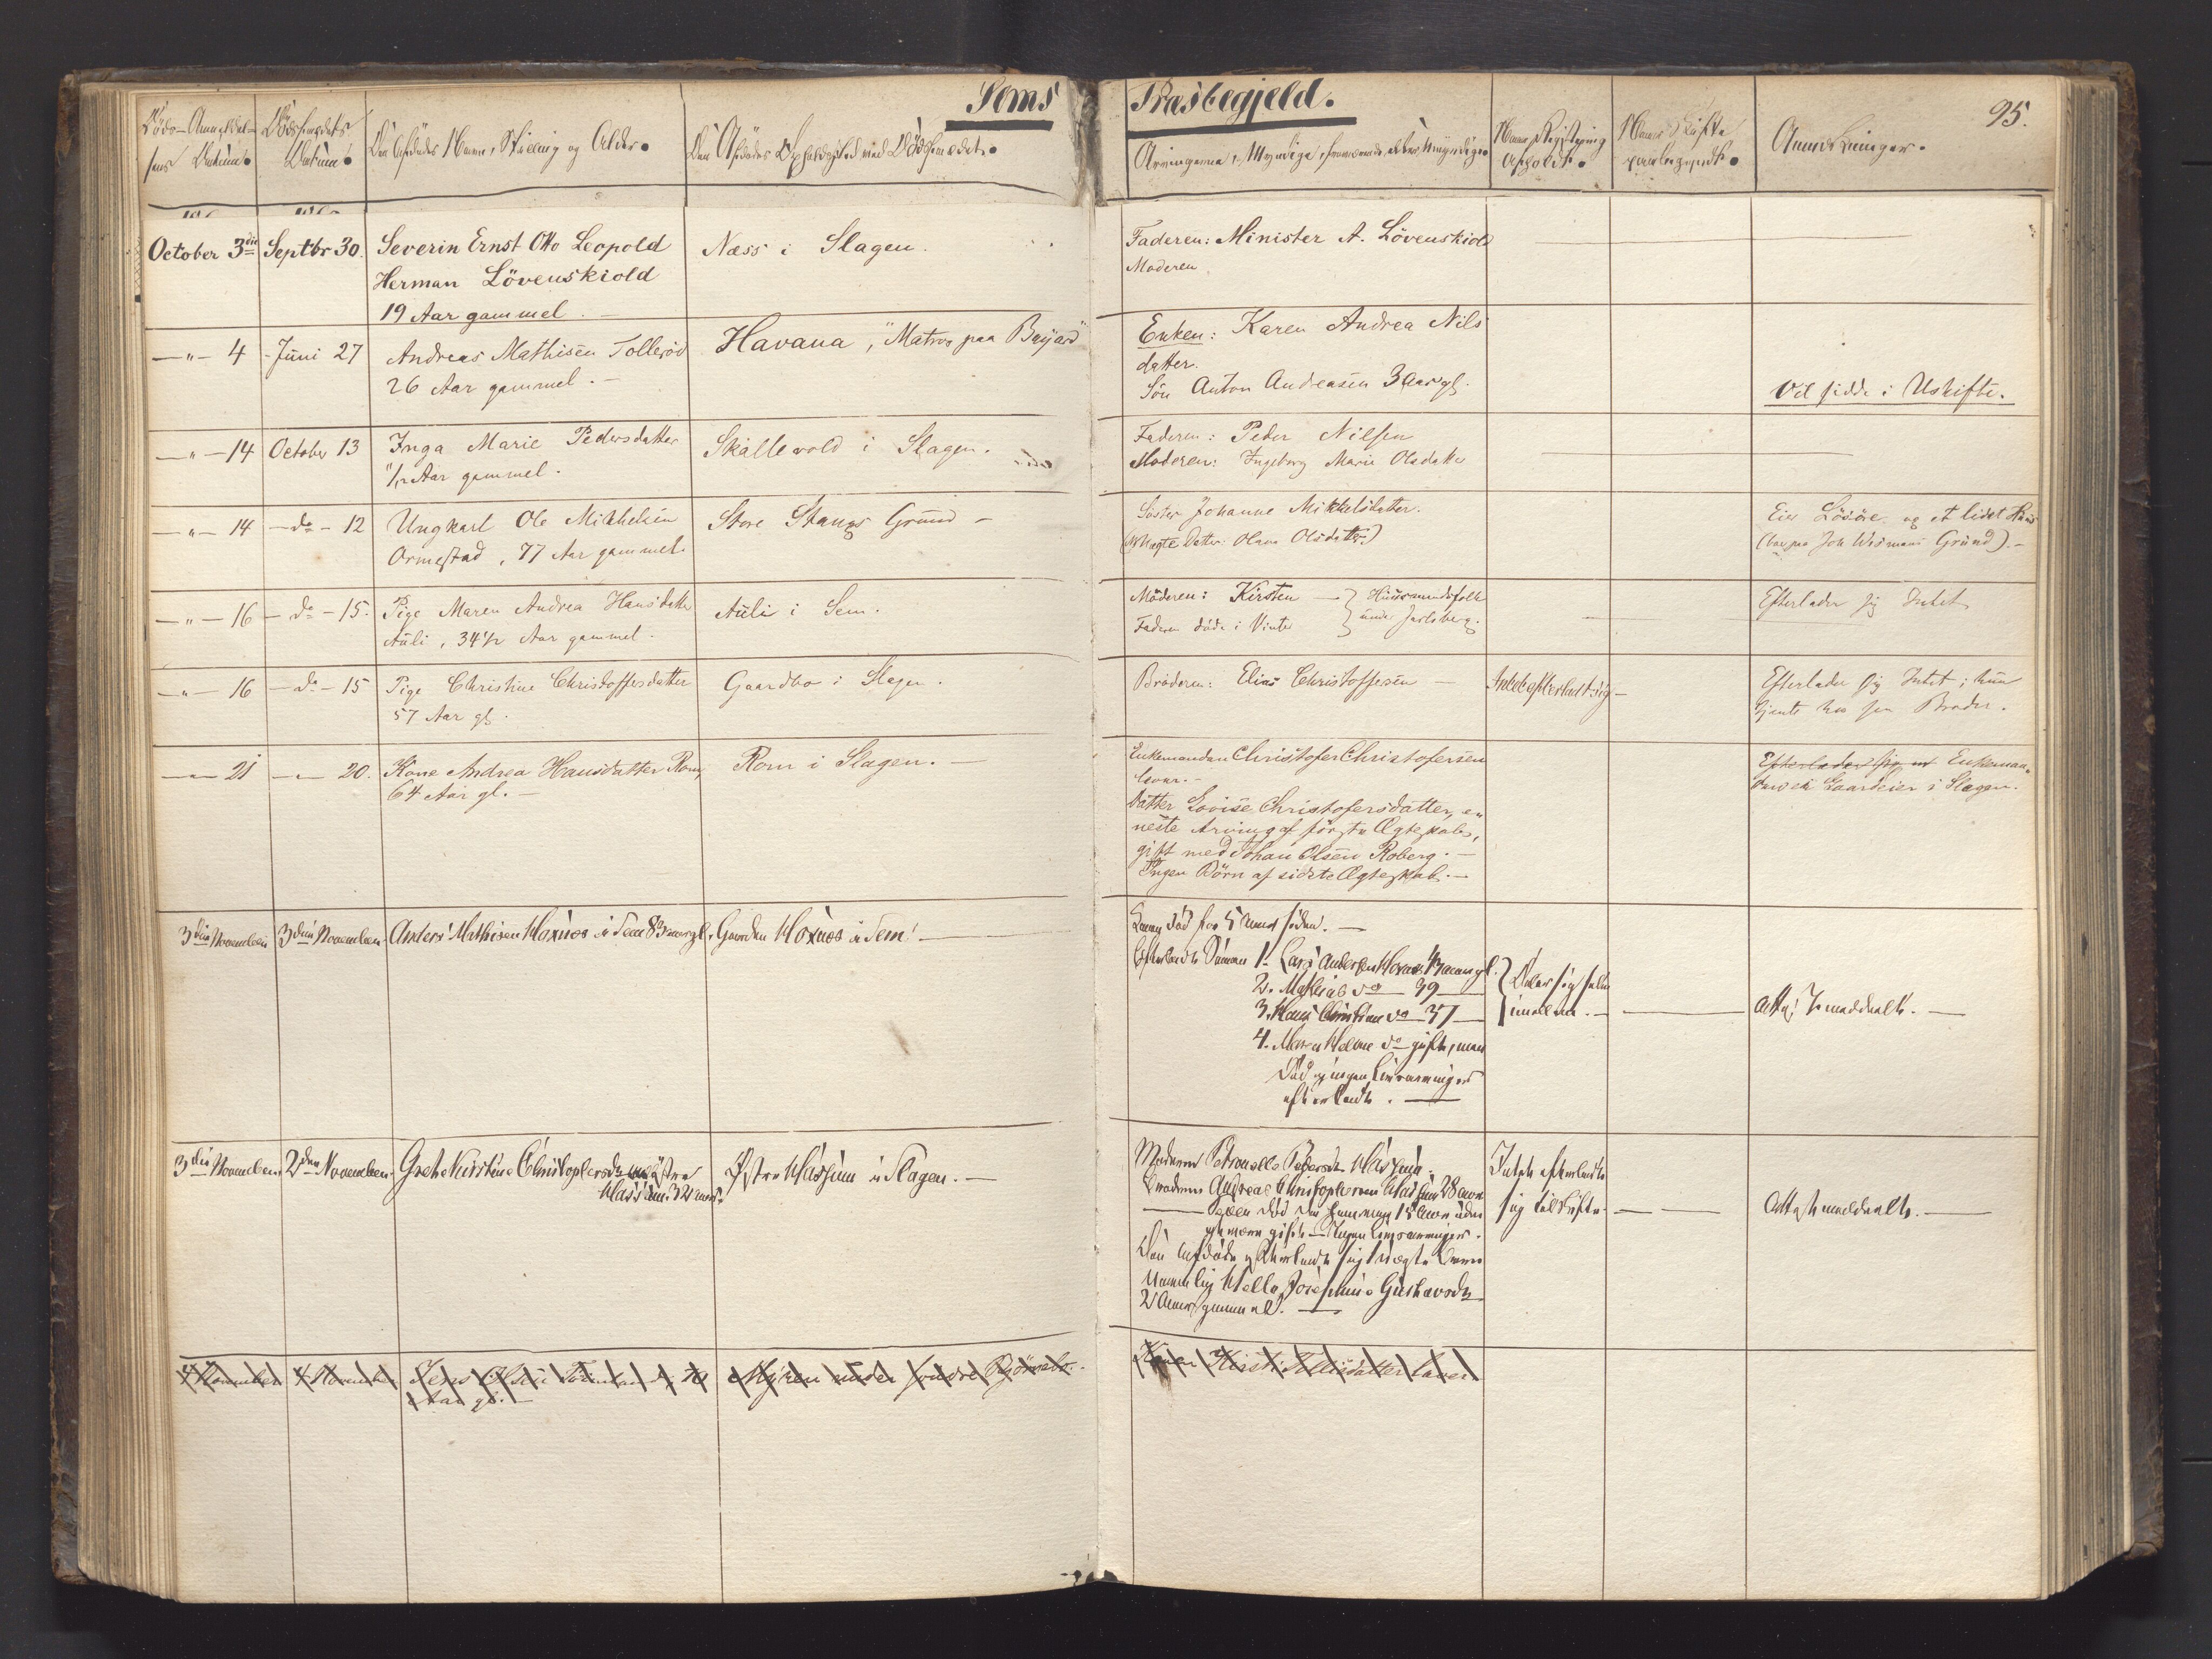 Sems Præstegjeld.
95.
Døds-Anmeldel-
sens Datum.
Dødsfaldets
Datum.
Den Afdødes Navn, Stilling og Alder.
Den Afdødes Opholdssted ved Dødsfaldet.
Arvingerne, Myndige, fraværende eller Umyndige.
Naar Registrering
afholdt.
Naar Skifte
Anmærkninger.
October 3die
Septbr 30.
Severin Ernst Otto Leopold
Herman Lövenskiold
19 Aar gammel.
Næss i Slagen.
Faderen: Minister A. Lövenskiold
Moderen
—"— 4
Juni 27
Andreas Mathisen Tolleröd
26 Aar gammel.
Havana, Matros paa "Bayard"
Enken: Karen Andrea Nils
datter.
Sön Anton Andreasen 3 Aar gl.
Vil sidde i Uskifte.
—"— 14
October 13
Inga Marie Pedersdatter
11/12 Aar gammel.
Skallevold i Slagen.
Faderen: Peder Nilsen
Moderen: Ingeborg Marie Olsdatter
—"— 14
— do — 12
Ungkarl Ole Mikkelsen
Ormestad, 77 Aar gammel.
Store Stangs Grund —
Söster Johanne Mikkelsdatter.
(Uægte Datter: Olava Olsdatter)
Eier Lösöre og et lidet Huus
(bor paa Joh Wismans Grund).—
—"— 16
— do — 15.
Pige Maren Andrea Hansdatter
Auli, 34 1/2 Aar gammel.
Auli i Sem.
Moderen: Kirsten — } Huusmandsfolk
Faderen döde i Vinter } under Jarlsberg.
Efterlader sig Intet
—"— 16
— do — 15
Pige Christine Christoffersdatter
57 Aar gl.
Gaardbo i Slagen.
Broderen: Elias Christoffersen —
Intet efterladt sig —
Efterlader sig Intet; hun
tjente hos sin Broder.
—"— 21
—"— 20.
Kone Andrea Hansdatter Rom,
64 Aar gl. —
Rom i Slagen. —
Enkemanden Christofer Christofersen
lever. —
Datter Lovise Christofersdatter, e-
neste Arving af förste Ægteskab,
gift med Johan Olsen Roberg. —
Ingen Börn af sidste Ægteskab. —
Efterlader sig Enkeman-
den er Gaardeier i Slagen.
3die November
3die November
Anders Mathisen Haxnes i Sem 83 aar gl.
Gaarden Haxnes i Sem. —
Konen död for 5 Aar siden. —
Efterladte Sönner 1. Lars Andersen Haxnes 43 aar gl.
2. Mathias do — 39 —
3. Hans Christian do — 37 —
4. Maren Helene do gift, men
död og ingen Livsarvinger
efterladt. —
} Deler sig selv
} imellem. —
Attest meddeelt. —
3die November
2den November
Grethe Kirstine Christophersdr östre
Hassum 32 aar.
Östre Hassum i Slagen. —
Moderen Petronelle Pedersdr Hassum.
Broderen Andreas Christophersen Hassum 28 aar
— Faderen död for henimod 15 Aar siden
ei være gift — Ingen Livsarvinger.
Den Afdøde efterladt sig 1 uægte Barn
nemlig Helle Josephine Gustavsdr
2 Aar gammel. —
Intet efterladt
sig til Skifte. —
Attest meddeelt. —
4 November
4 November
Jens Olsen
Aar gl. —
Myren under söndre Bjørnebo. —
Konen Kirsti Tollisdatter lever.